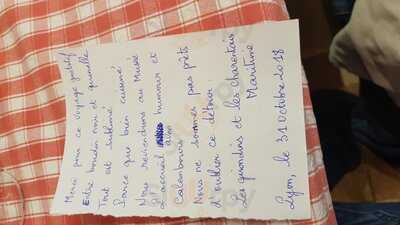 Merci pour ce voyage gustatif
Entre boudin noir et quenelle
Tout est sublimé
Parce que bien cuisiné
Nous reviendrons au Musée
L'accueil avec humour et
Calembours
Nous ne sommes pas prêts
d'oublier ce détour
Les girondins et les charentais
Maritime
Lyon, le 31 Octobre 2018